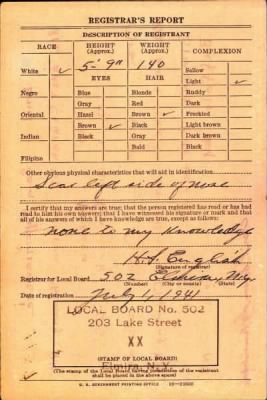 REGISTRAR'S REPORT
DESCRIPTION OF REGISTRANT
RACE HEIGHT (Approx.) WEIGHT (Approx.) COMPLEXION
5-9" 140 Sallow
White ✓ EYES HAIR Light ✓
Negro Blue Blonde Ruddy
Gray Red Dark
Oriental Hazel Brown ✓ Freckled
Brown ✓ Black Light brown
Indian Black Gray Dark brown
Bald Black
Filipino
Other obvious physical characteristics that will aid in identification.
Scar left side of nose
I certify that my answers are true; that the person registered has read or has had
read to him his own answers; that I have witnessed his signature or mark and that
all of his answers of which I have knowledge are true, except as follows:
none to my knowledge
H. S. English
(Signature of registrar)
Registrar for Local Board 502 Elmira, N.Y.
(Number) (City or county) (State)
Date of registration July 1, 1941
LOCAL BOARD No. 502
203 Lake Street
XX
(STAMP OF LOCAL BOARD)
Elmira, N.Y.
(The stamp of the Local Board having jurisdiction of the registrant
shall be placed in the above space)
U. S. GOVERNMENT PRINTING OFFICE